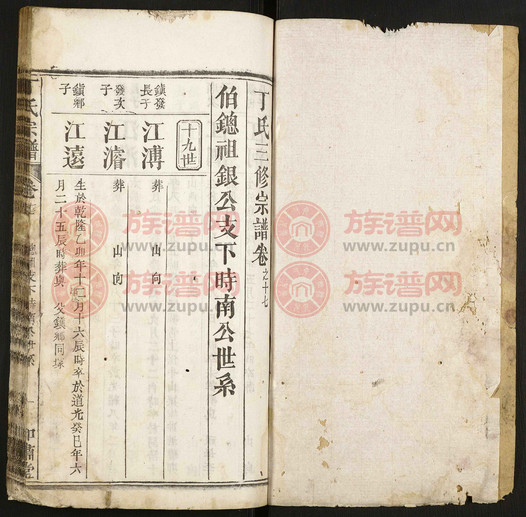 丁氏三修宗譜卷之十七
伯鏓祖銀公支下時南公世系
十九世
鎮發長子
江溥
葬 山 向
發次子
江濬
葬 山 向
鎮鄉子
江遠
生於乾隆乙卯年十月十六辰時卒於道光癸巳年六
月二十五辰時葬與 父鎮鄉同塚
氏宗譜
卷
族谱网
www.zupu.cn
族谱网
www.zupu.cn
族谱网
www.zupu.cn
族谱网
www.zupu.cn